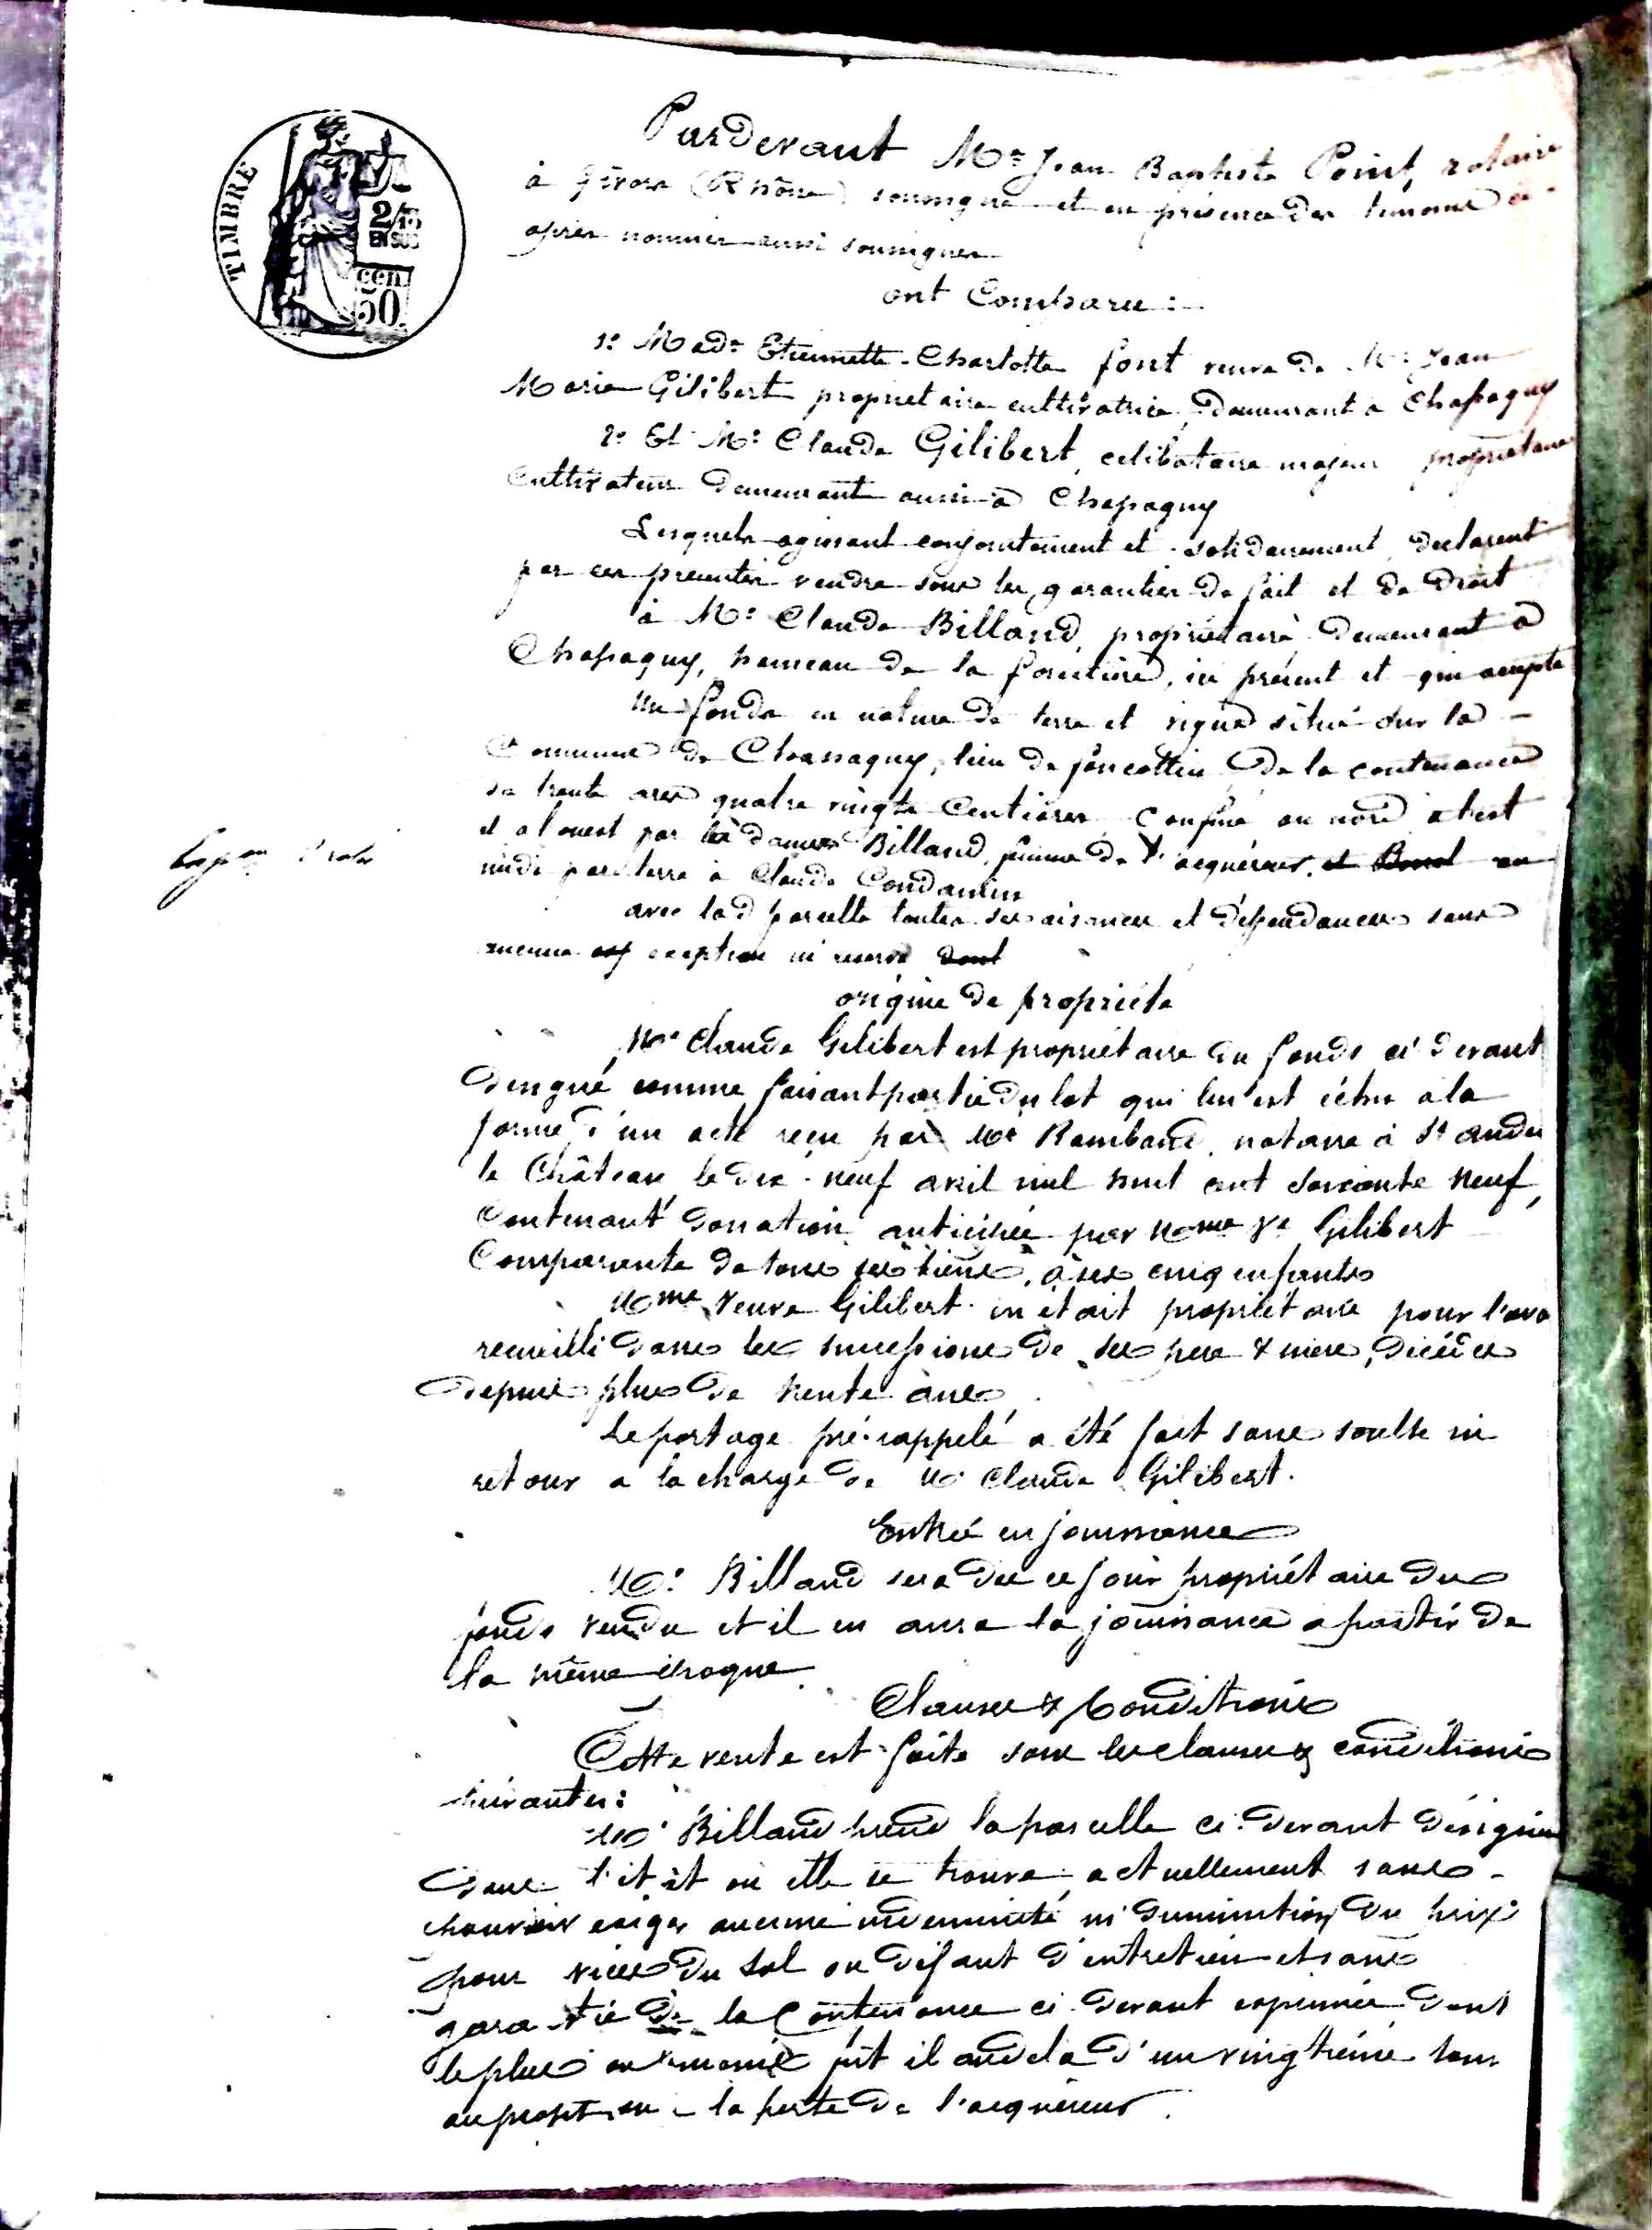 TIMBRE
2/10
EN SUS
50
cen.
Pardevant Me Jean Baptiste Point, notaire
à Givors (Rhône) soussigné et en présence des témoins ci
après nommés aussi soussignés
ont Comparu :
1° Made Etiennette Charlotte font veuve de Mr Jean
Marie Gilibert propriétaire cultivatrice, demeurant à Chassagny
2° Et Mr Claude Gilibert, célibataire majeur propriétaire
Cultivateur demeurant aussi à Chassagny
Lesquels agissant conjointement et solidairement, déclarent
par ces présentes vendre sous les garanties de fait et de droit
à Mr Claude Billand, propriétaire demeurant à
Chassagny, hameau de la forestière, ici présent et qui accepte
Un fonds en nature de terre et vigne situé sur la
Commune de Chassagny, lieu de de la contenance
de trente ares quatre vingts Centiares Confiné au nord à l'est
et à l'ouest par Billand, femme de l'acquéreur, et au
midi par terre à Claude Condamin
avec lad parcelle toutes ses aisances et dépendances sans
aucune exception ni réserve dont
origine de propriété
Mr Claude Gilibert est propriétaire du fonds ci devant
désigné comme faisant partie du lot qui lui est échu à la
forme d'un acte reçu par Me Rambaud, notaire à St andré
le Château le dix-neuf avril mil huit cent soixante neuf,
Contenant donation anticipée par Mme Ve Gilibert
Comparante de tous ses biens, à ses cinq enfants
Mme Veuve Gilibert en était propriétaire pour l'avo
recueilli dans les successions de ses père & mère, décédés
depuis plus de trente ans
Le partage pré-rappelé a été fait sans soulte ni
retour à la charge de Mr Claude Gilibert.
Entrée en jouissance
Mr Billand sera dès ce jour propriétaire du
fonds vendu et il en aura la jouissance à partir de
la même époque
Clauses & Conditions
Cette vente est faite sous les clauses & conditions
suivantes :
Mr Billand prend la parcelle ci-devant désignée
dans l'état où elle se trouve actuellement sans
pouvoir exiger aucune indemnité ni diminution du prix
pour vices du sol ou défaut d'entretien et sans
garantie de la Contenance ci devant exprimée dont
le plus ou moins fut il audela d'un vingtième sera
au profit ou à la perte de l'acquéreur.